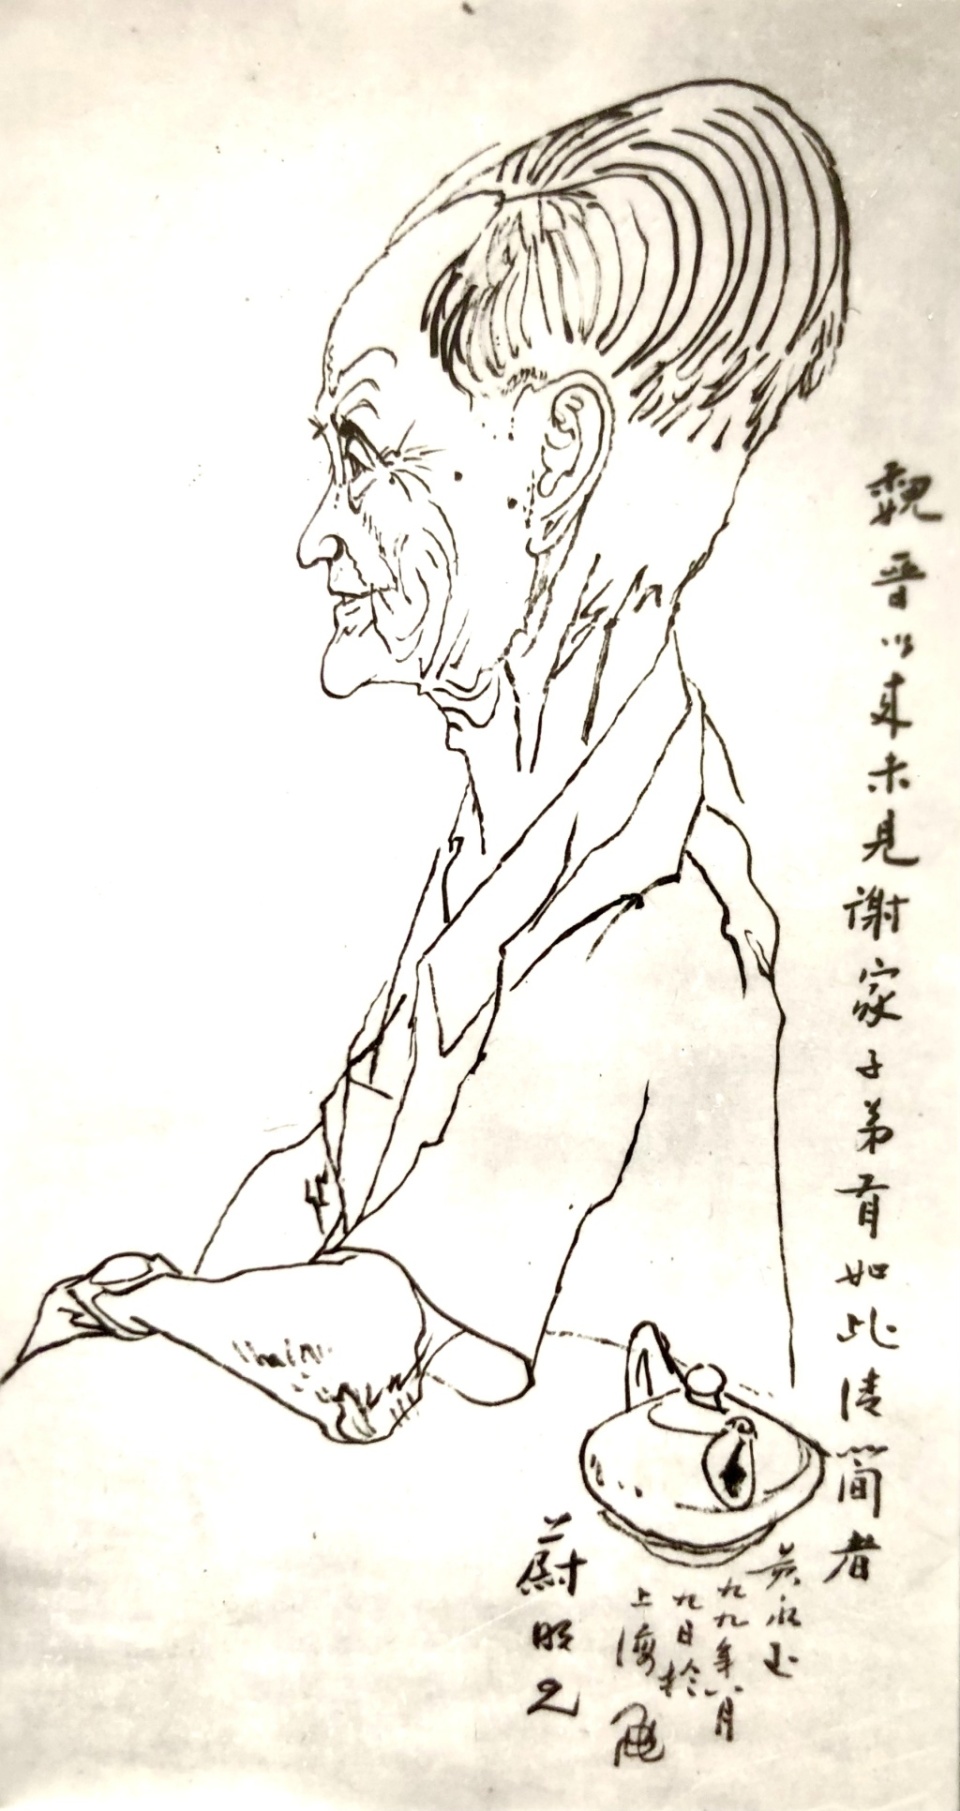 魏晋以来未見謝家子弟有如此清简者
黄永玉
九九年八月
九日於
上海
蔚明兄